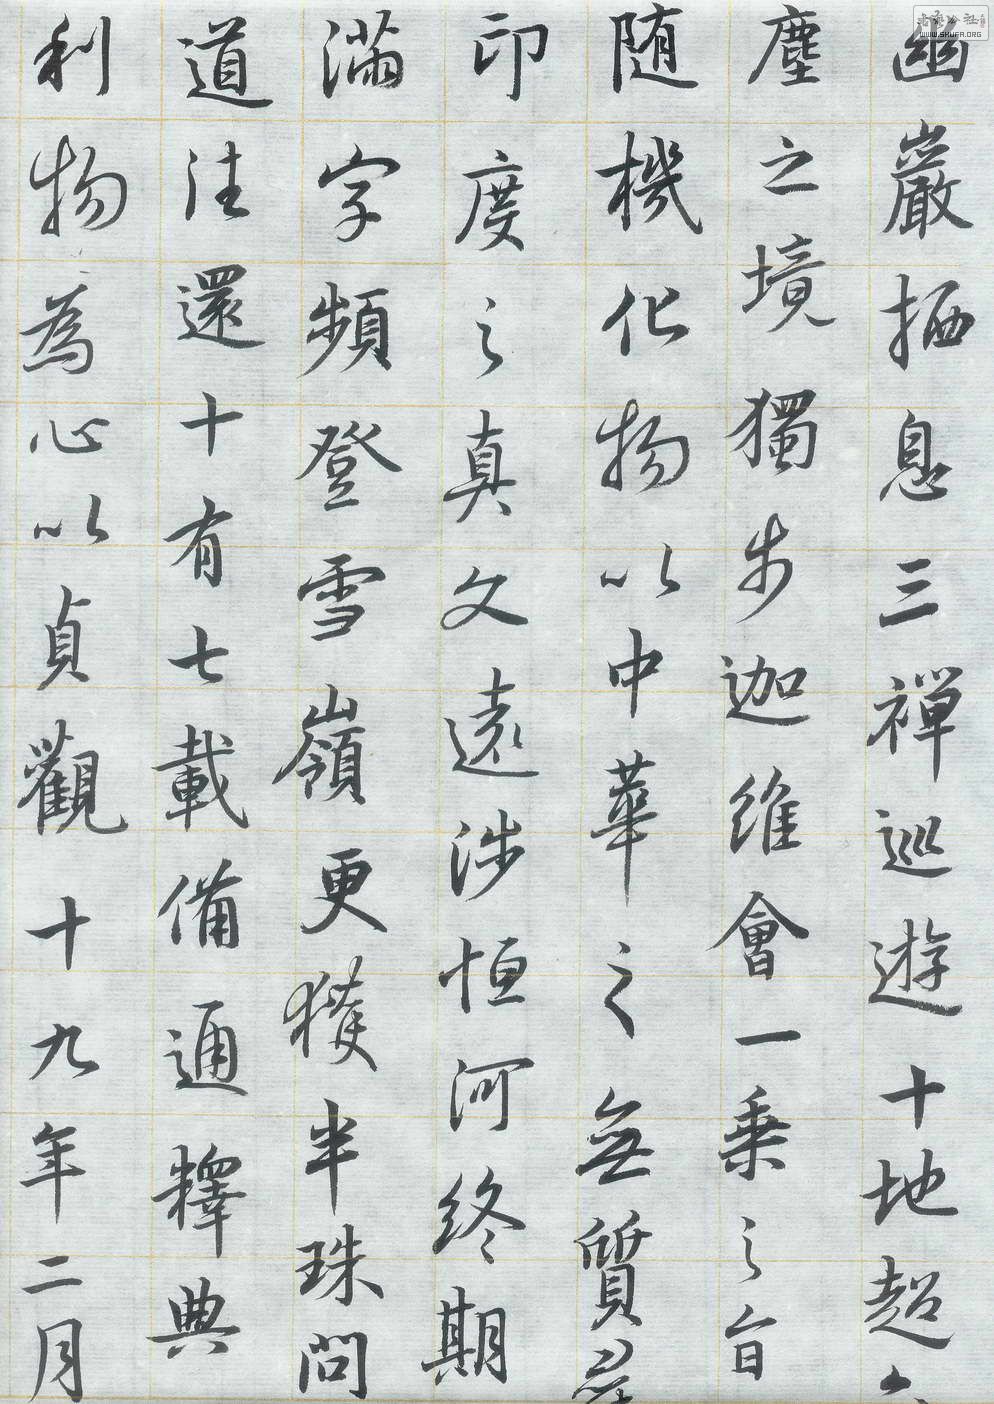 幽巖栖息三禪巡遊十地超
塵之境獨步迦維會一乘之旨
随機化物以中華之無質尋
印度之真文遠涉恒河終期
滿字頻登雪嶺更獲半珠問
道往還十有七載備通釋典
利物為心以貞觀十九年二月
WWW.SHUFA.ORG